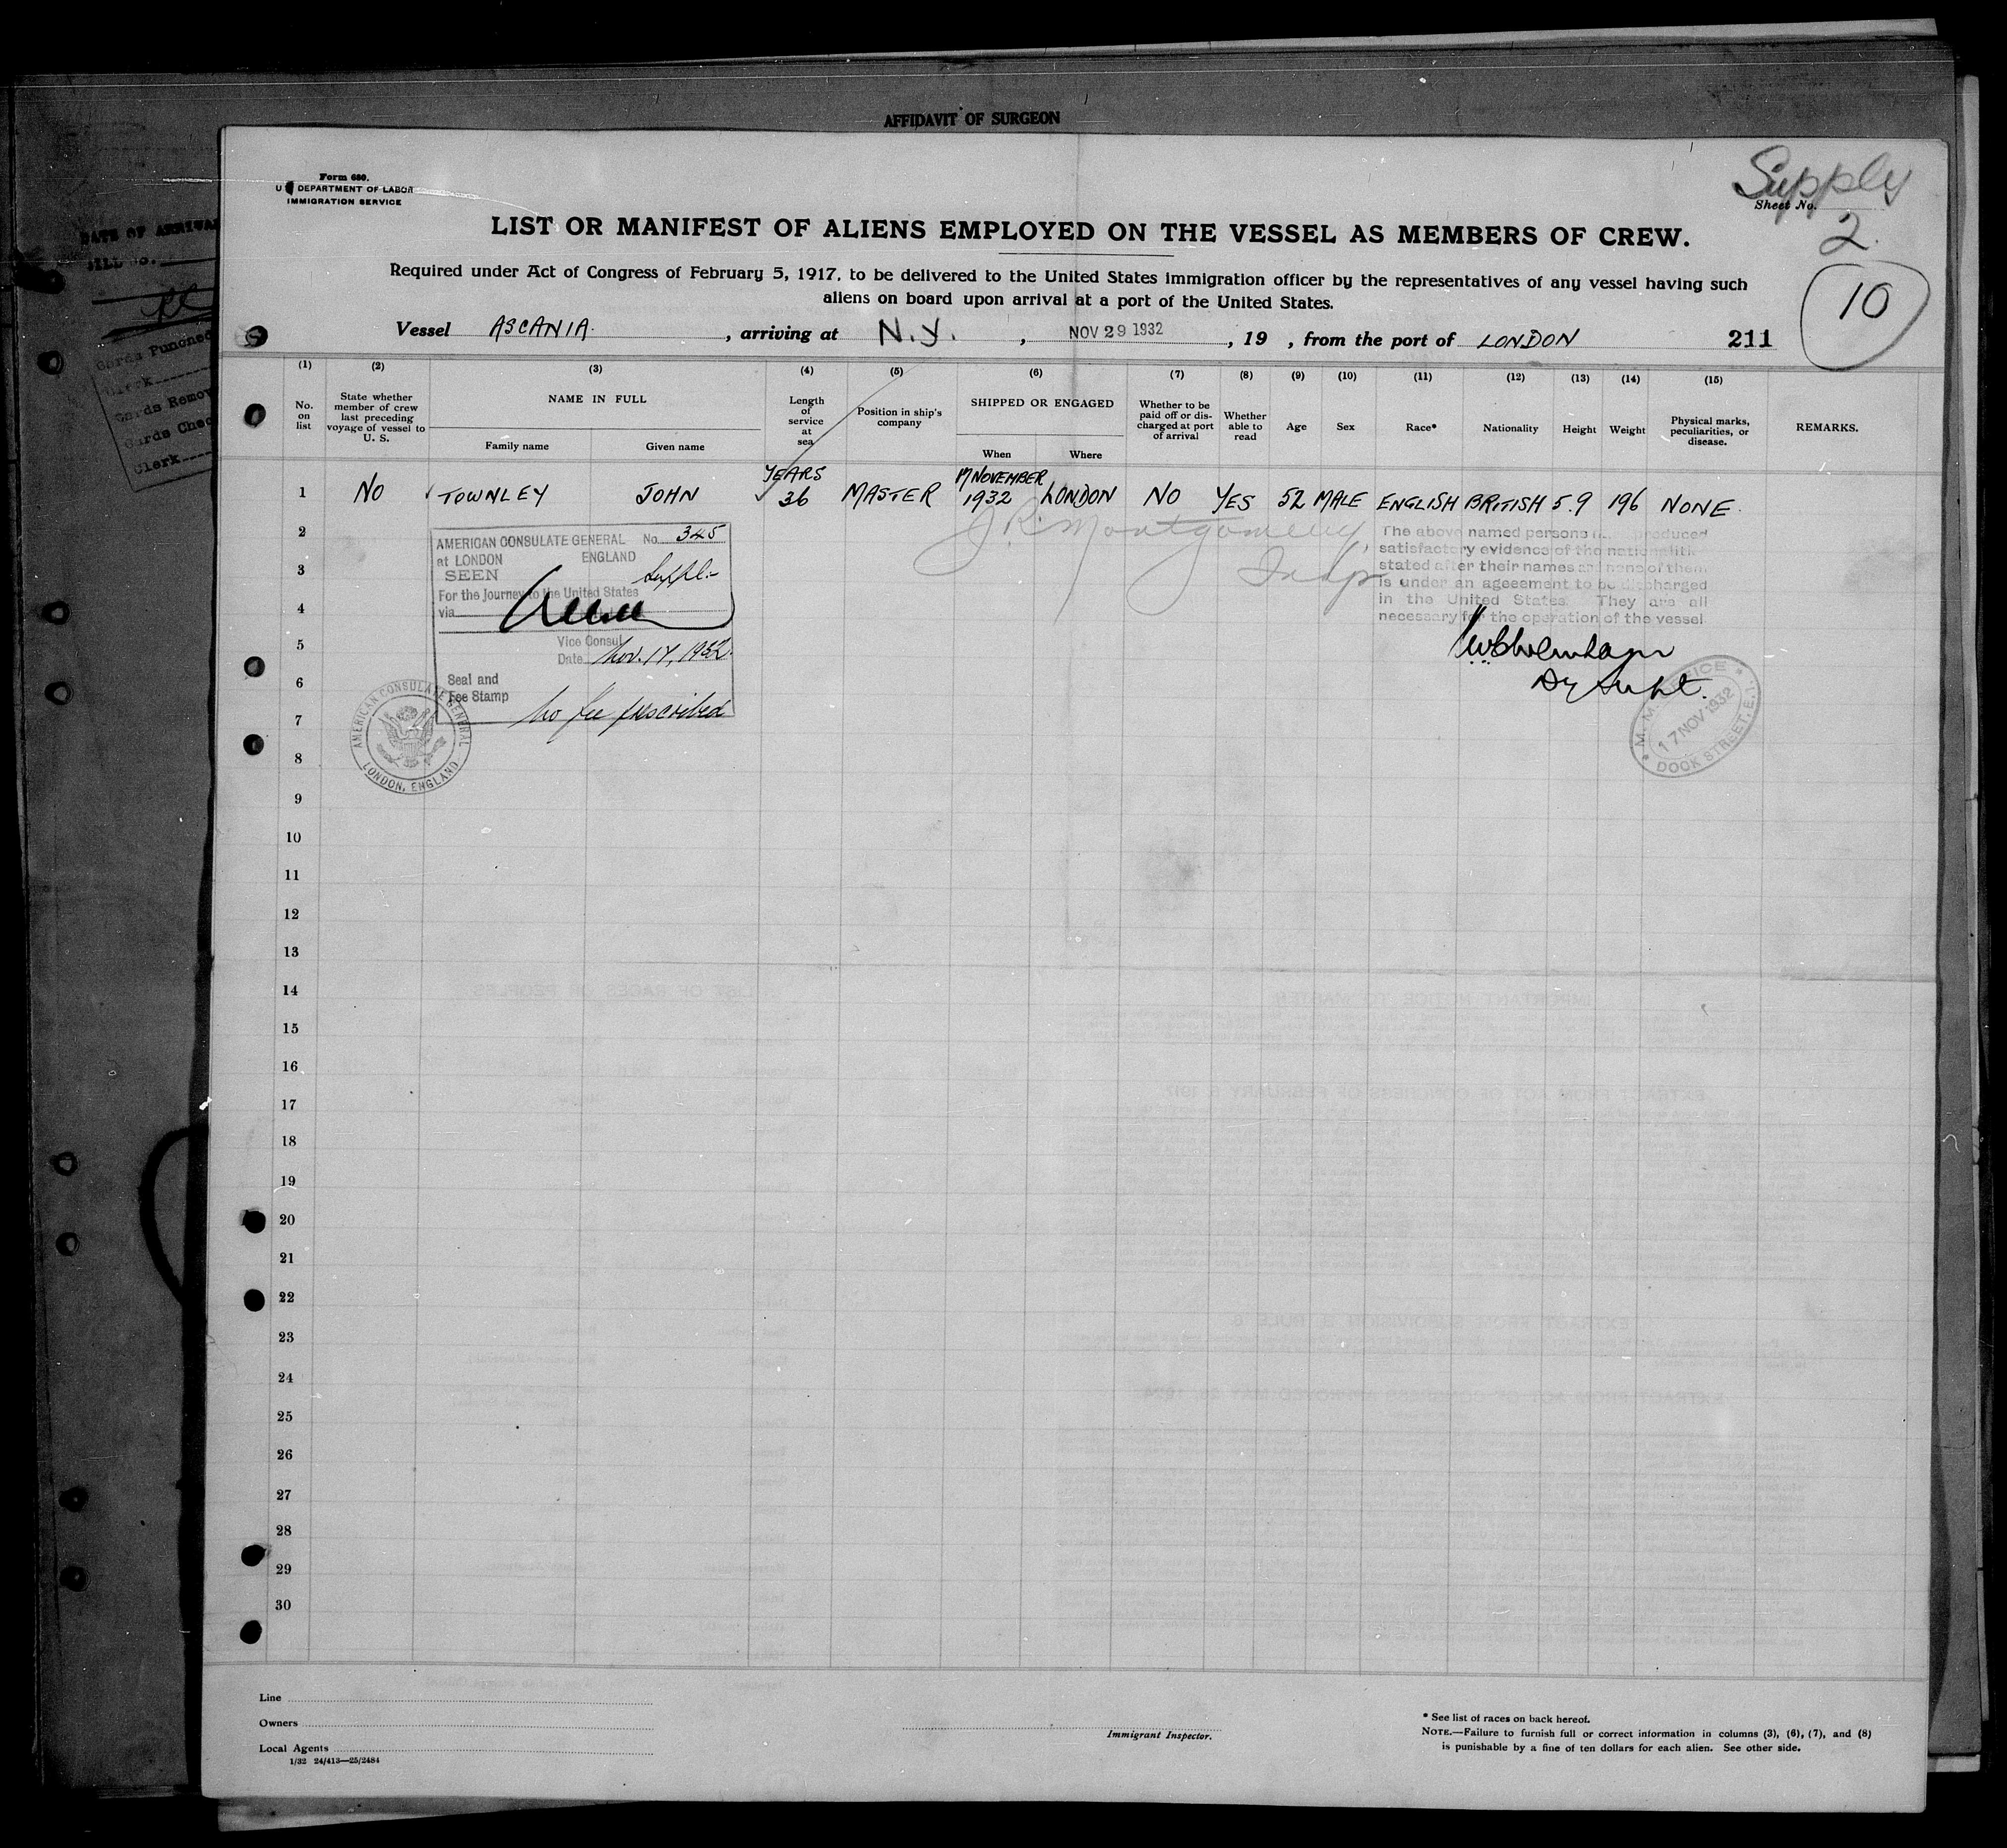 AFFIDAVIT OF SURGEON
DATE OF ARRIVAL
Cards Punched
Clerk
Cards Remov
Cards Chec
Clerk
Form 680.
U DEPARTMENT OF LABOR
IMMIGRATION SERVICE
Supply
Sheet No.
2.
10
LIST OR MANIFEST OF ALIENS EMPLOYED ON THE VESSEL AS MEMBERS OF CREW.
Required under Act of Congress of February 5, 1917, to be delivered to the United States immigration officer by the representatives of any vessel having such
aliens on board upon arrival at a port of the United States.
Vessel ASCANIA. , arriving at N.Y. , NOV 29 1932 , 19 , from the port of LONDON 211
(1) (2) (3) (4) (5) (6) (7) (8) (9) (10) (11) (12) (13) (14) (15)
No. on list
State whether member of crew last preceding voyage of vessel to U. S.
NAME IN FULL
Family name Given name
Length of service at sea
Position in ship's company
SHIPPED OR ENGAGED
When Where
Whether to be paid off or discharged at port of arrival
Whether able to read
Age
Sex
Race*
Nationality
Height
Weight
Physical marks, peculiarities, or disease.
REMARKS.
YEARS 17 NOVEMBER
1 NO TOWNLEY JOHN 36 MASTER 1932 LONDON NO YES 52 MALE ENGLISH BRITISH 5.9 196 NONE.
J. R. Montgomery,
Insp
AMERICAN CONSULATE GENERAL No. 345
at LONDON ENGLAND
SEEN Suppl.
For the Journey to the United States
via
Vice Consul
Date Nov. 17, 1932.
Seal and
Fee Stamp
No fee prescribed
AMERICAN CONSULATE GENERAL
LONDON, ENGLAND
The above named persons produced
satisfactory evidence of the nationalitie
stated after their names and none of them
is under an ageeement to be discharged
in the United States. They are all
necessary for the operation of the vessel
Dy Supt.
M. M. OFFICE
17 NOV 1932
DOCK STREET, E.1.
2
3
4
5
6
7
8
9
10
11
12
13
14
15
16
17
18
19
20
21
22
23
24
25
26
27
28
29
30
Line
Owners
Local Agents
1/32 24/413—25/2484
Immigrant Inspector.
* See list of races on back hereof.
NOTE.—Failure to furnish full or correct information in columns (3), (6), (7), and (8)
is punishable by a fine of ten dollars for each alien. See other side.